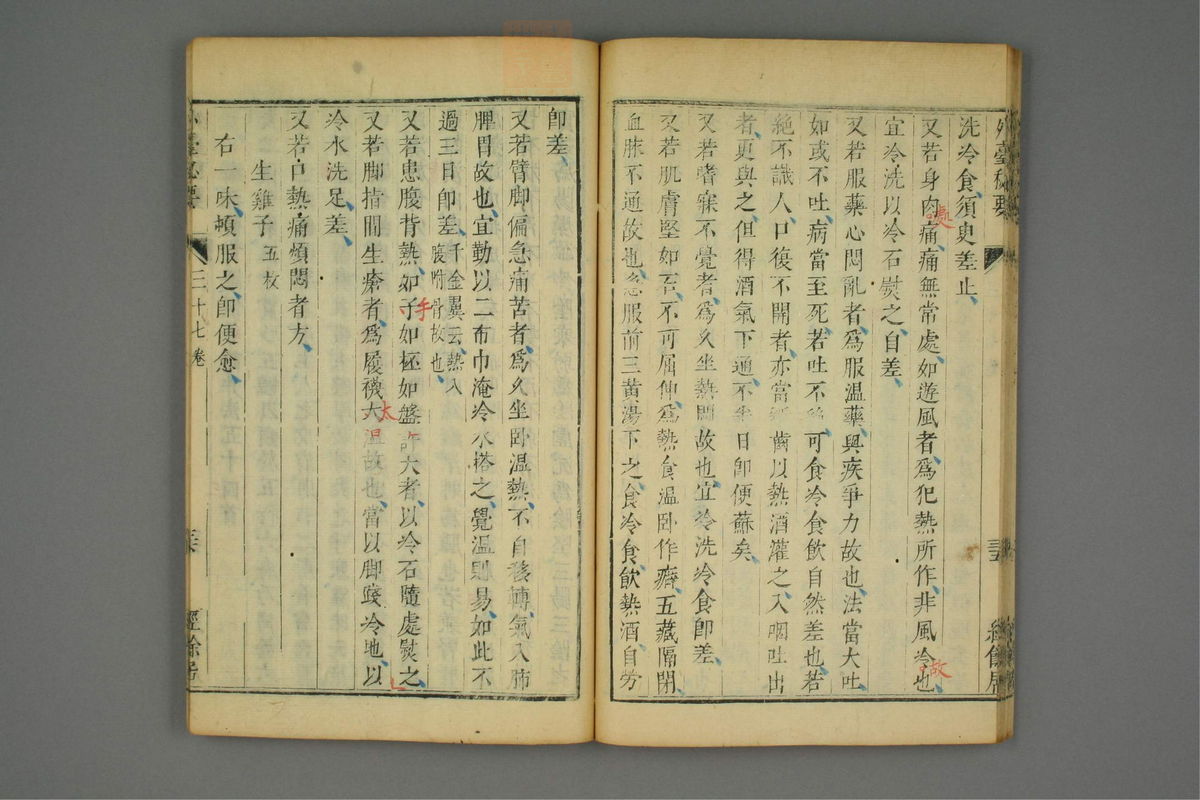 外臺秘要
洗冷食須臾差止
又若身肉痛痛無常處如遊風者爲犯熱所作非風冷也
處
故
宜冷洗以冷石熨之自差
又若服藥心悶亂者爲服温藥與疾爭力故也法當大吐
如或不吐病當至死若吐不可食冷食飲自然差也若
絶不識人口復不開者亦當齒以熱酒灌之入咽吐出
者更與之但得酒氣下通不日即便蘇矣
又若嗜寐不覺者爲久坐熱悶故也宜冷洗冷食即差
又若肌膚堅如石不可屈伸爲熱食温卧作癖五藏隔閉
血脉不通故也急服前三黄湯下之食冷食飲熱酒自勞
經餘居
即差
又若臂脚偏急痛苦者爲久坐卧温熱不自移轉氣入肺
脾胃故也宜勤以二布巾淹冷水搭之覺温則易如此不
過三日即差千金翼云熱入
腹附骨故也
又若患腹背熱如子如柸如盤許大者以冷石隨處熨之
手
又若脚指間生瘡者爲履襪大温故也當以脚踐冷地以
太
冷水洗足差
又若口熱痛煩悶者方
生雞子五枚
右一味頓服之即便愈
三十七卷
經餘居